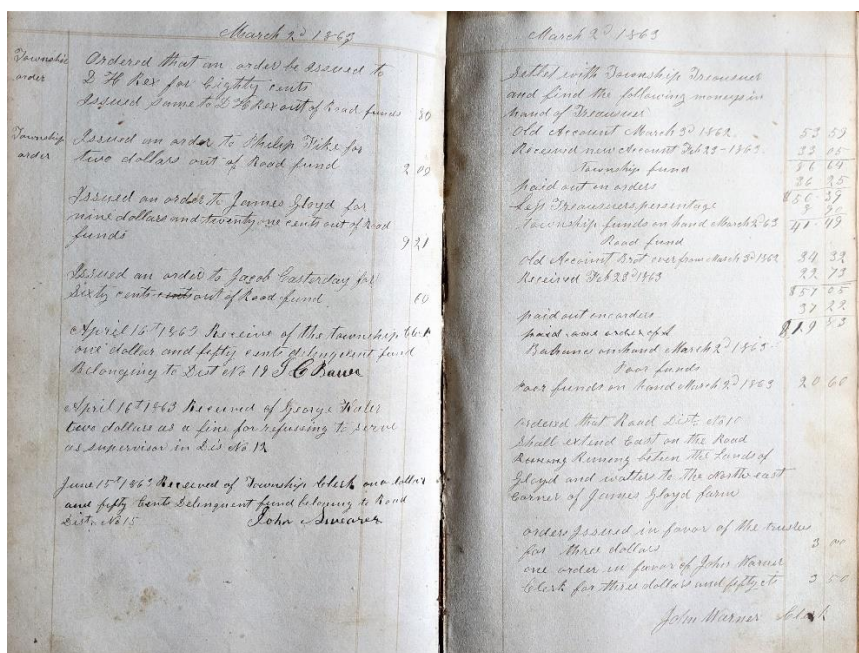 March 2d 1863
Township
order
Ordered that an order be Issued to
D H Rex for Eighty cents
Issued Same to D H Rex out of Road funds 80
Township
order
Issued an order to Philip Fike for
two dollars out of Road fund 2 00
Issued an order to James Gloyd for
nine dollars and twenty one cents out of Road
funds 9 21
Issued an order to Jacob Easterday for
Sixty cents cents out of Road fund 60
April 16th 1863 Receive of the township Clerk
one dollar and fifty cents delinquent fund
Belonging to Dist No 19 J C
April 16th 1863 Received of George
two dollars as a fine for refussing to serve
as supervisor in Dis No 12
June 15th 1863 Received of Township Clerk on a dollar
and fifty Cents Delinquent fund beloging to Road
Dist. No 15 John Swearer
March 2d 1863
Settled with Township Treasurer
and find the following moneys in
hand of Treasurer
Old Account March 3d 1862 53 59
Received new Account Feb 23 - 1863 33 05
Township fund 86 64
paid out on orders 36 25
Less Treasurers persentage $50.39
township funds on hand March 2d 63 41.49
Road fund
Old Account Brot over from March 3d 1862 34 32
Received Feb 23d 1863 22 73
$57 05
paid out on orders 37 22
paid out
$19 83
Balance on hand March 2d 1863
Poor funds
Poor funds on hand March 2d 1863 20 60
ordered that Road Dist. No 15
Shall extend East on the Road
Runing Runing beteen the Lands of
Gloyd and watters to the North east
Corner of James Gloyd farm
orders Issued in favor of the trustees
for three dollars 3 00
one order in favor of John Warner
Clerk for three dollars and fifty cts 3 50
John Warner Clerk